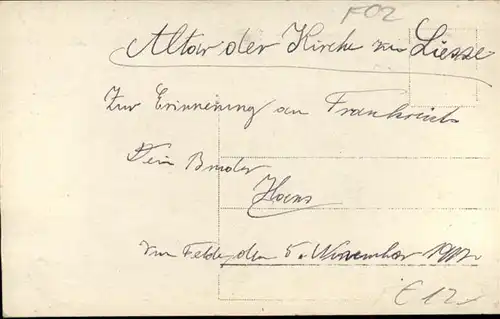 F02
Altar der Kirche von Liesse
Zur Erinnerung an Frankreich
Dein Bruder
Hans
Im Felde, den 5. November 1917.
E 12